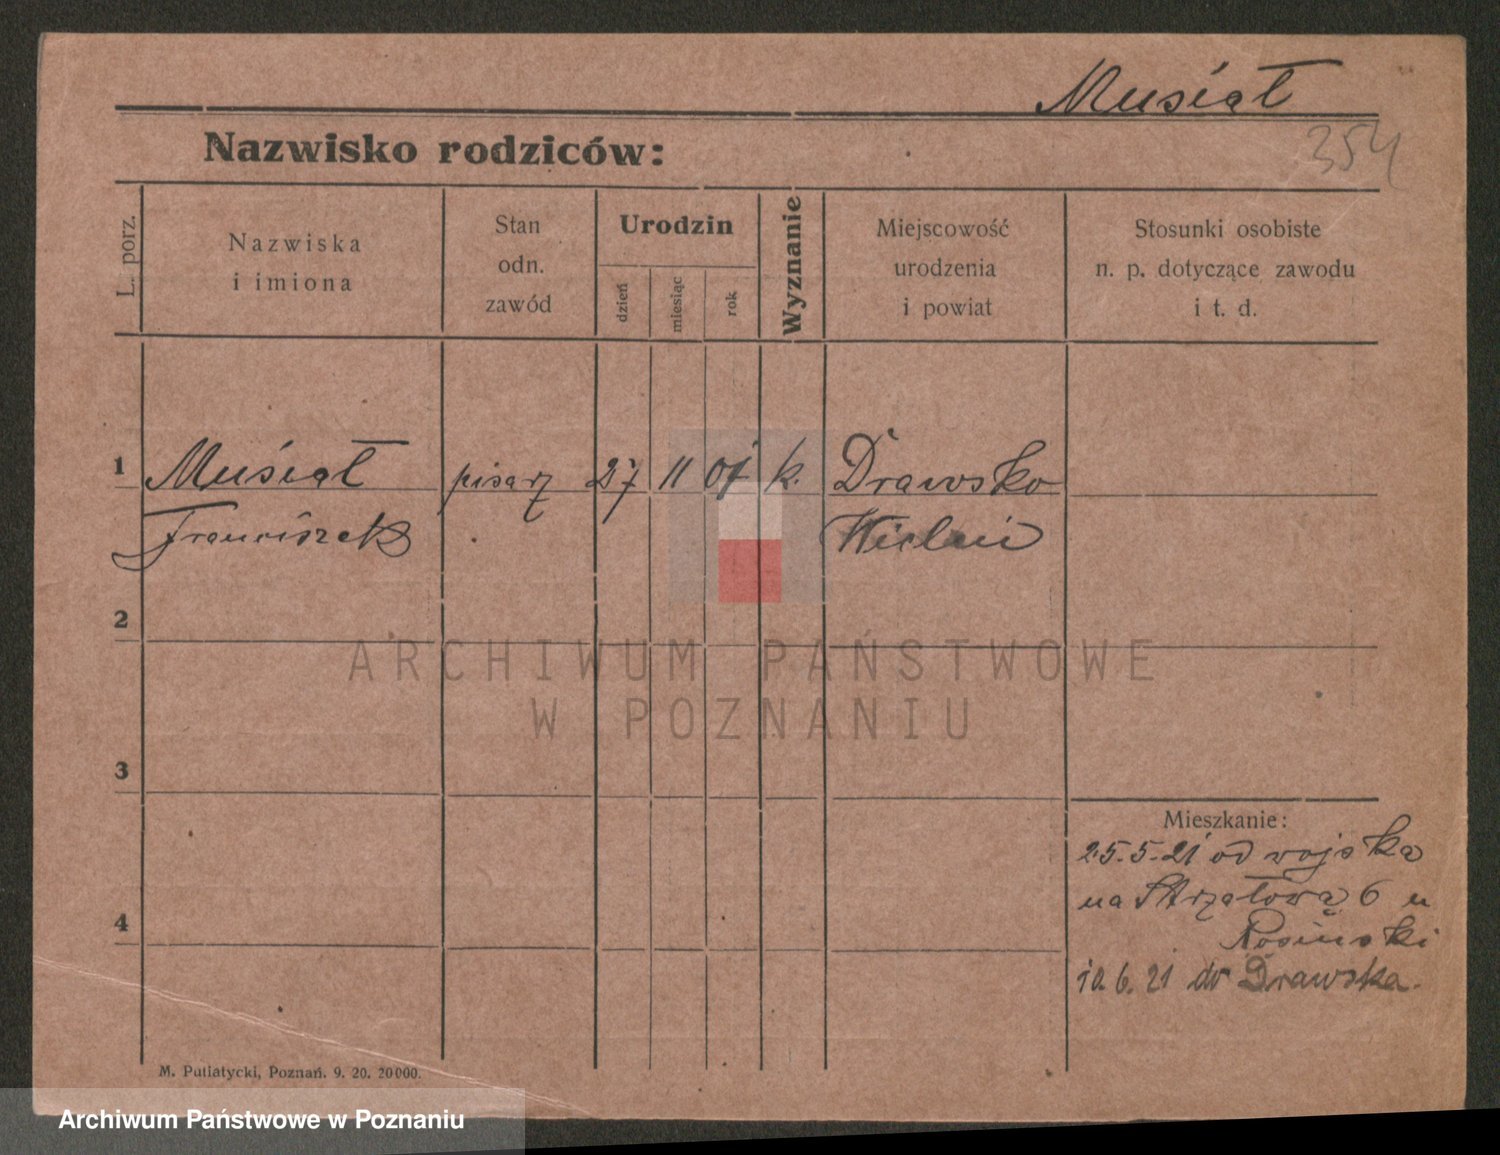 Musiał
354
Nazwisko rodziców:
L. porz.
Nazwiska
i imiona
Stan
odn.
zawód
Urodzin
dzień
miesiąc
rok
Wyznanie
Miejscowość
urodzenia
i powiat
Stosunki osobiste
n. p. dotyczące zawodu
i t. d.
1
Musiał pisarz 27 11 01 k. Drawsko
Franciszek Wieleń
2
3
4
Mieszkanie:
25.5.21 od wojska
na Strzałową 6 u
Rosiński
10.6.21 do Drawska.
M. Putiatycki, Poznań. 9. 20. 20000.
ARCHIWUM PAŃSTWOWE
W POZNANIU
Archiwum Państwowe w Poznaniu